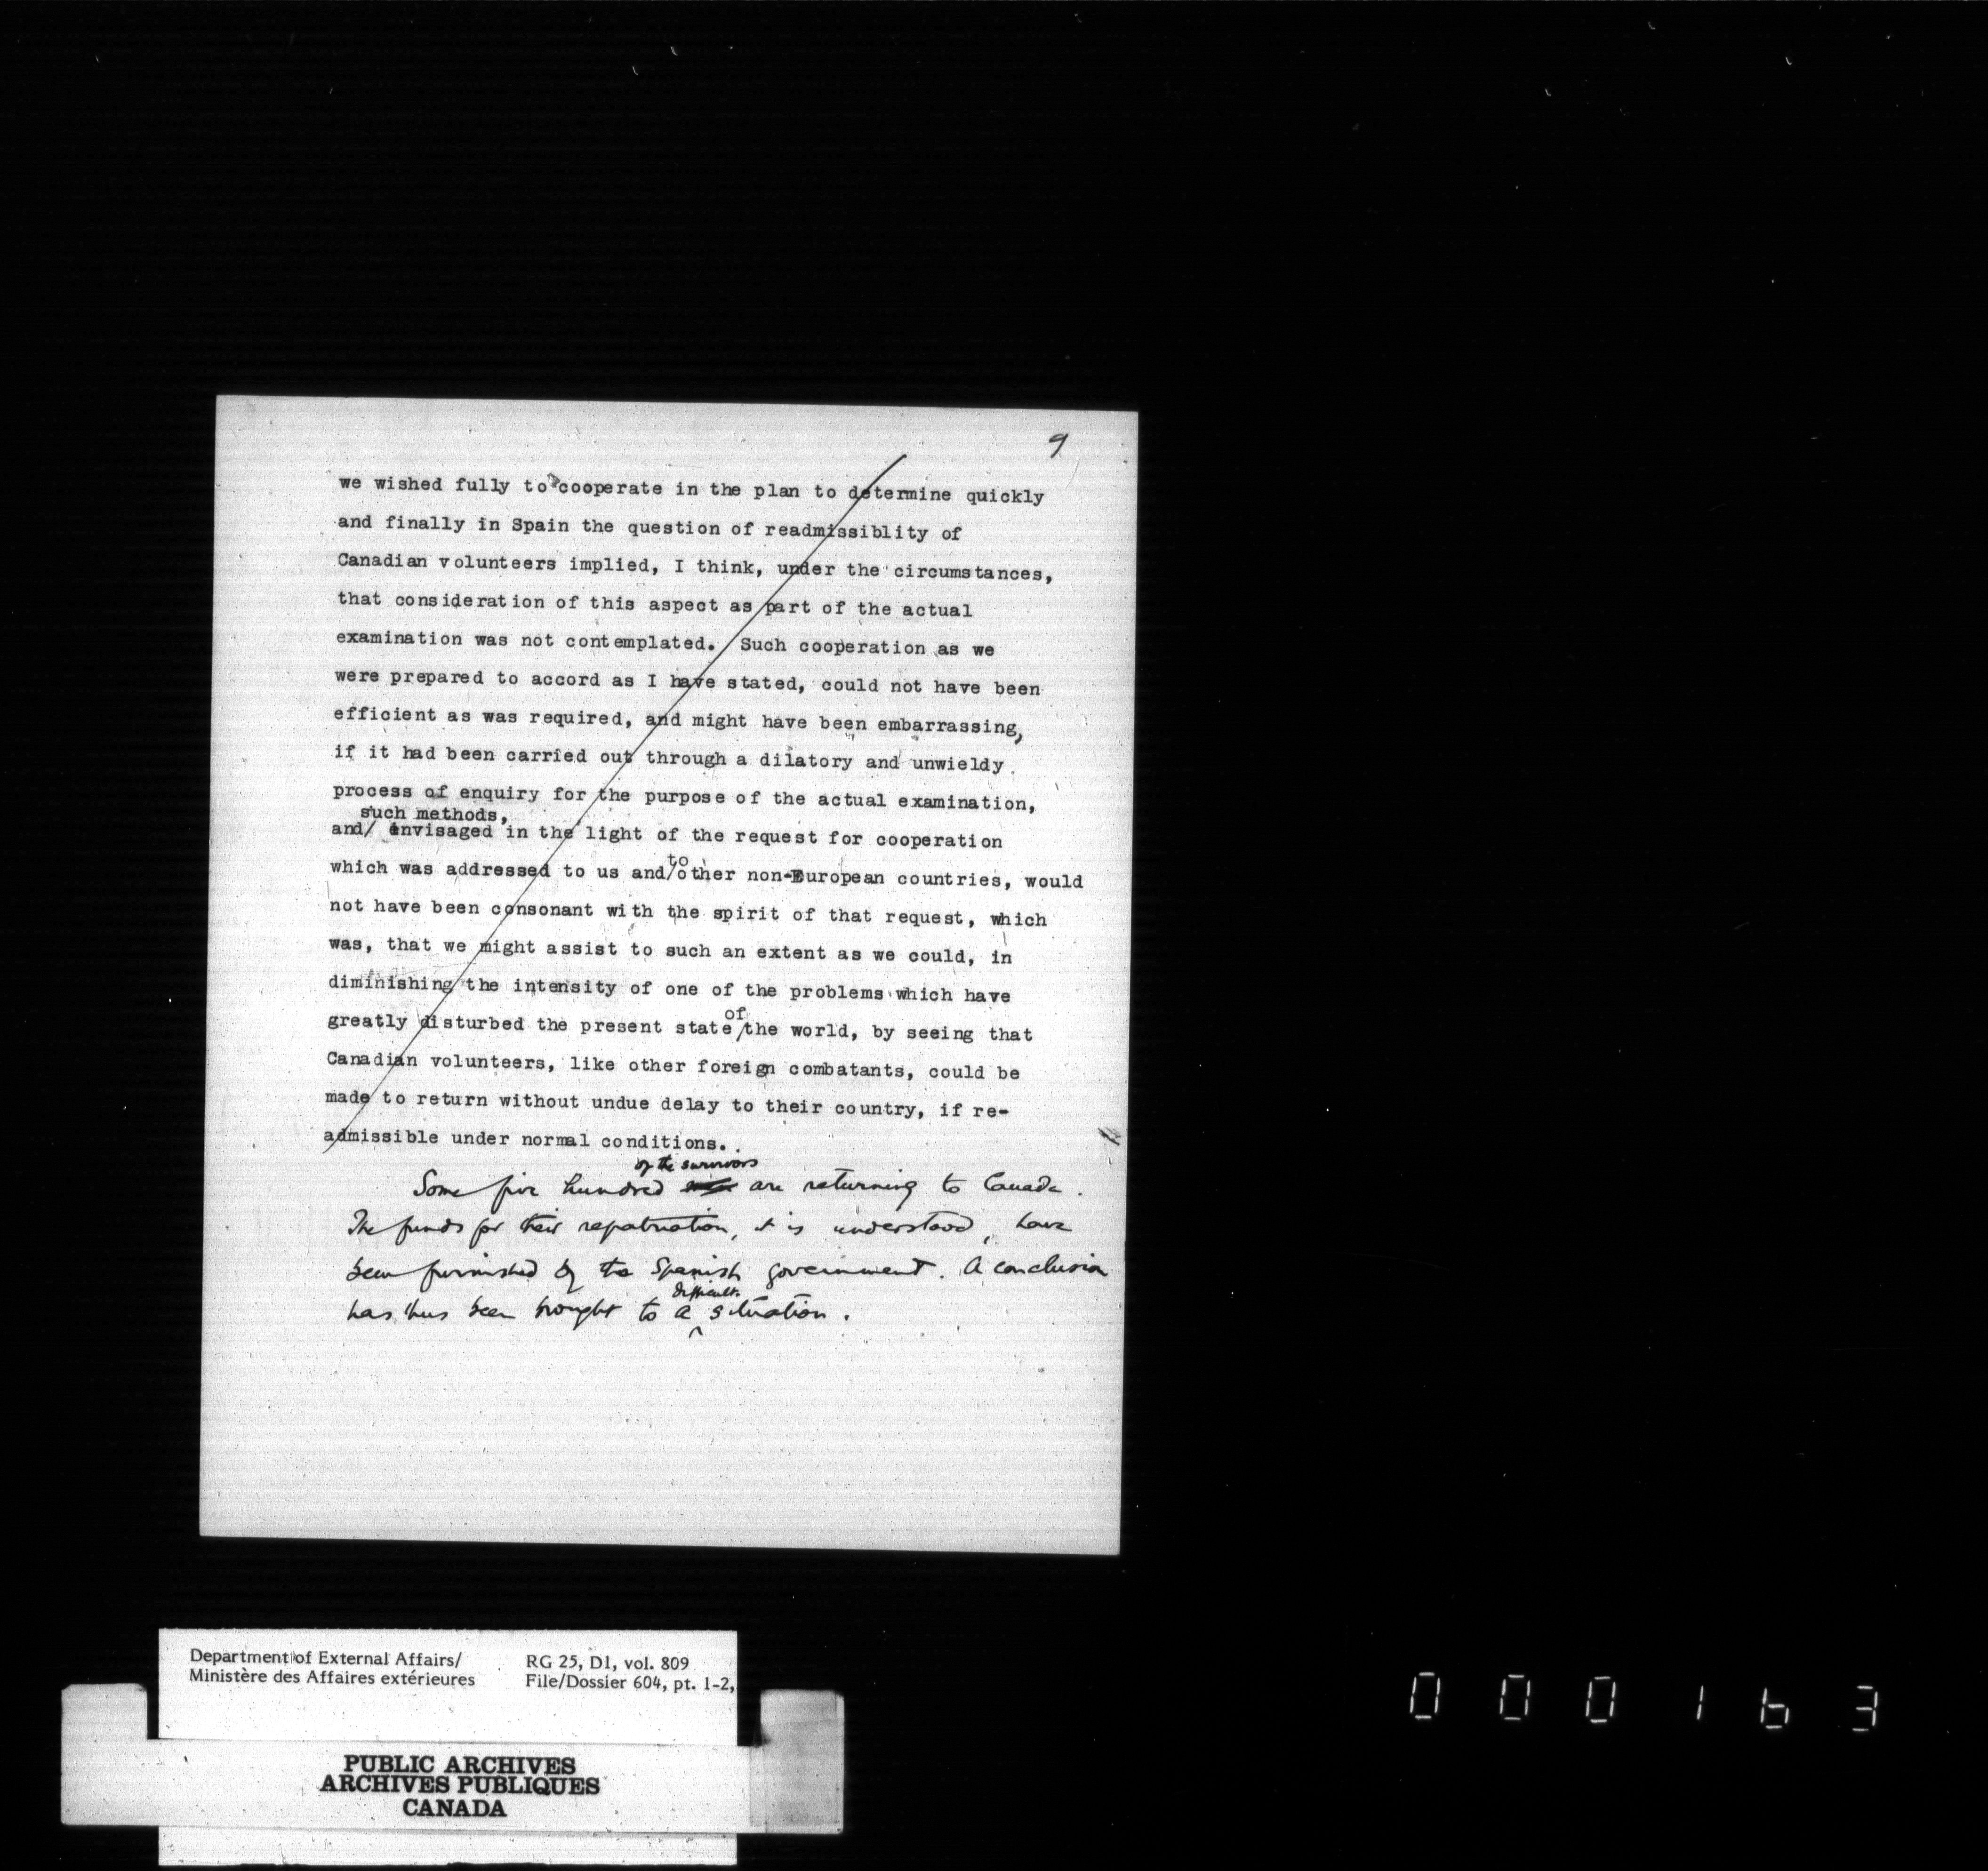 9
we wished fully to cooperate in the plan to determine quickly
and finally in Spain the question of readmissiblity of
Canadian volunteers implied, I think, under the circumstances,
that consideration of this aspect as part of the actual
examination was not contemplated. Such cooperation as we
were prepared to accord as I have stated, could not have been
efficient as was required, and might have been embarrassing,
if it had been carried out through a dilatory and unwieldy
process of enquiry for the purpose of the actual examination,
such methods,
and/ envisaged in the light of the request for cooperation
to
which was addressed to us and/other non-European countries, would
not have been consonant with the spirit of that request, which
was, that we might assist to such an extent as we could, in
diminishing the intensity of one of the problems which have
of
greatly disturbed the present state/the world, by seeing that
Canadian volunteers, like other foreign combatants, could be
made to return without undue delay to their country, if re-
admissible under normal conditions.
of the survivors
Some five hundred are returning to Canada.
The funds for their repatriation, it is understood, have
been furnished by the Spanish government. A conclusion
difficult
has thus been brought to a situation.
Department of External Affairs/
Ministère des Affaires extérieures
RG 25, D1, vol. 809
File/Dossier 604, pt. 1-2,
PUBLIC ARCHIVES
ARCHIVES PUBLIQUES
CANADA
000163